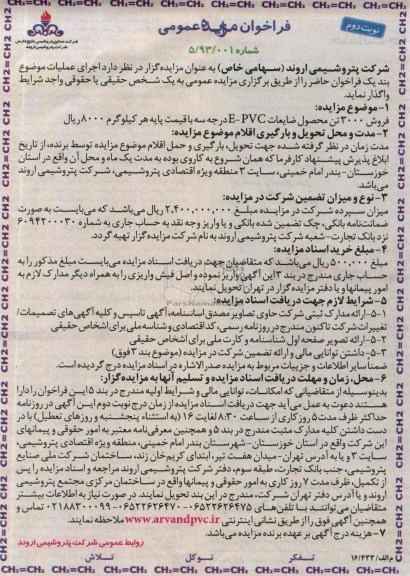 نوبت دوم
فراخوان مزایده عمومی
شماره ۵/۹۳/۰۰۱
شرکت پتروشیمی اروند (سهامی خاص) به عنوان مزایده‌گزار در نظر دارد اجرای عملیات موضوع
بند یک فراخوان حاضر را از طریق برگزاری مزایده عمومی به یک شخص حقیقی یا حقوقی واجد شرایط
واگذار نماید.
۱- موضوع مزایده:
فروش ۳۰۰۰ تن محصول ضایعات E-PVC درجه سه با قیمت پایه هر کیلوگرم ۸۰۰۰ ریال
۲- مدت و محل تحویل و بارگیری اقلام موضوع مزایده:
مدت زمان در نظر گرفته شده جهت تحویل، بارگیری و حمل اقلام موضوع مزایده توسط برنده، از تاریخ
ابلاغ پذیرش پیشنهاد کارفرما که همان شروع به کاروی بوده به مدت یک ماه و محل آن واقع در استان
خوزستان- بندر امام خمینی، سایت ۳ منطقه ویژه اقتصادی پتروشیمی، شرکت پتروشیمی اروند
می‌باشد.
۳- نوع و میزان تضمین شرکت در مزایده:
میزان سپرده شرکت در مزایده مبلغ ۲,۴۰۰,۰۰۰,۰۰۰ ریال می‌باشد که می‌بایست به صورت
ضمانت‌نامه بانکی، چک تضمین شده بانکی و یا واریز وجه نقد به حساب جاری به شماره ۶۰۹۴۲۰۰۰۳۰
نزد بانک تجارت- شعبه شرکت پتروشیمی اروند به نام شرکت مزایده گزار تهیه گردد.
۴- مبلغ خرید اسناد مزایده:
۵۰۰,۰۰۰ ریال می‌باشد که متقاضیان جهت دریافت اسناد مزایده می‌بایست مبلغ مذکور را به
حساب جاری مندرج در بند ۳ این آگهی واریز نموده و اصل فیش واریزی را به همراه دیگر مدارک لازم به
امور پیمانها و یا دفتر مزایده گزار در تهران تحویل نمایند.
۵- شرایط لازم جهت دریافت اسناد مزایده:
۵-۱- ارائه مدارک ثبتی شرکت حاوی تصاویر مصدق اساسنامه، آگهی تاسیس و کلیه آگهی‌های تصمیمات/
تغییرات شرکت تاکنون مندرج در روزنامه رسمی، کد اقتصادی و شناسه ملی برای اشخاص حقوقی
۵-۲- ارائه تصویر صفحه اول شناسنامه و کارت ملی برای اشخاص حقیقی
۵-۳- داشتن توانایی مالی و ارائه تضمین شرکت در مزایده (موضوع بند ۳ فوق)
ضمناً سایر اطلاعات و جزییات مربوط به مزایده صدرالاشاره در اسناد مزایده درج گردیده است.
۶- محل، زمان و مهلت دریافت اسناد مزایده و تسلیم آنها به مزایده‌گزار:
بدینوسیله از متقاضیانی که امکانات، توانایی مالی و شرایط اولیه مندرج در بند ۵ این فراخوان را دارا
هستند دعوت به عمل می‌آید جهت دریافت اسناد مزایده از زمان درج نوبت دوم این آگهی در روزنامه
حداکثر ظرف مدت ۵ روز کاری از ساعت ۸:۳۰ لغایت ۱۶ (به استثناء پنجشنبه و روزهای تعطیل) با در
دست داشتن کلیه مدارک مثبت مندرج در بند ۵ و همچنین معرفی‌نامه معتبر به امور حقوقی و پیمانهای
این شرکت واقع در استان خوزستان- شهرستان بندر امام خمینی، منطقه ویژه اقتصادی پتروشیمی،
سایت ۳ و یا به آدرس تهران- میدان هفت تیر، ابتدای کریم‌خان زند، ساختمان شرکت ملی صنایع
پتروشیمی، جنب بانک تجارت، طبقه سوم، دفتر شرکت پتروشیمی اروند مراجعه و اسناد مزایده را پس
از تکمیل، ظرف مدت ۷ روز کاری به امور حقوقی و پیمانها واقع در ساختمان مرکزی مجتمع پتروشیمی
اروند و یا آدرس دفتر تهران شرکت، مندرج در این بند تحویل نمایند. در صورت نیاز به اطلاعات بیشتر
متقاضیان می‌توانند با تلفن‌های ۰۶۵۲۲۶۲۶۴۷۵-۰۶۵۲۲۶۲۶۴۷۰ و ۰۲۱۸۸۳۰۰۰۹۹ تماس و
همچنین آگهی فوق را از طریق نشانی اینترنتی www.arvandpvc.ir ملاحظه نمایند.
۷- هزینه درج آگهی بر عهده برنده مزایده می‌باشد.
روابط عمومی شرکت پتروشیمی اروند
م الف/۱۶/۴۳۳
تفکر توکل تلاش